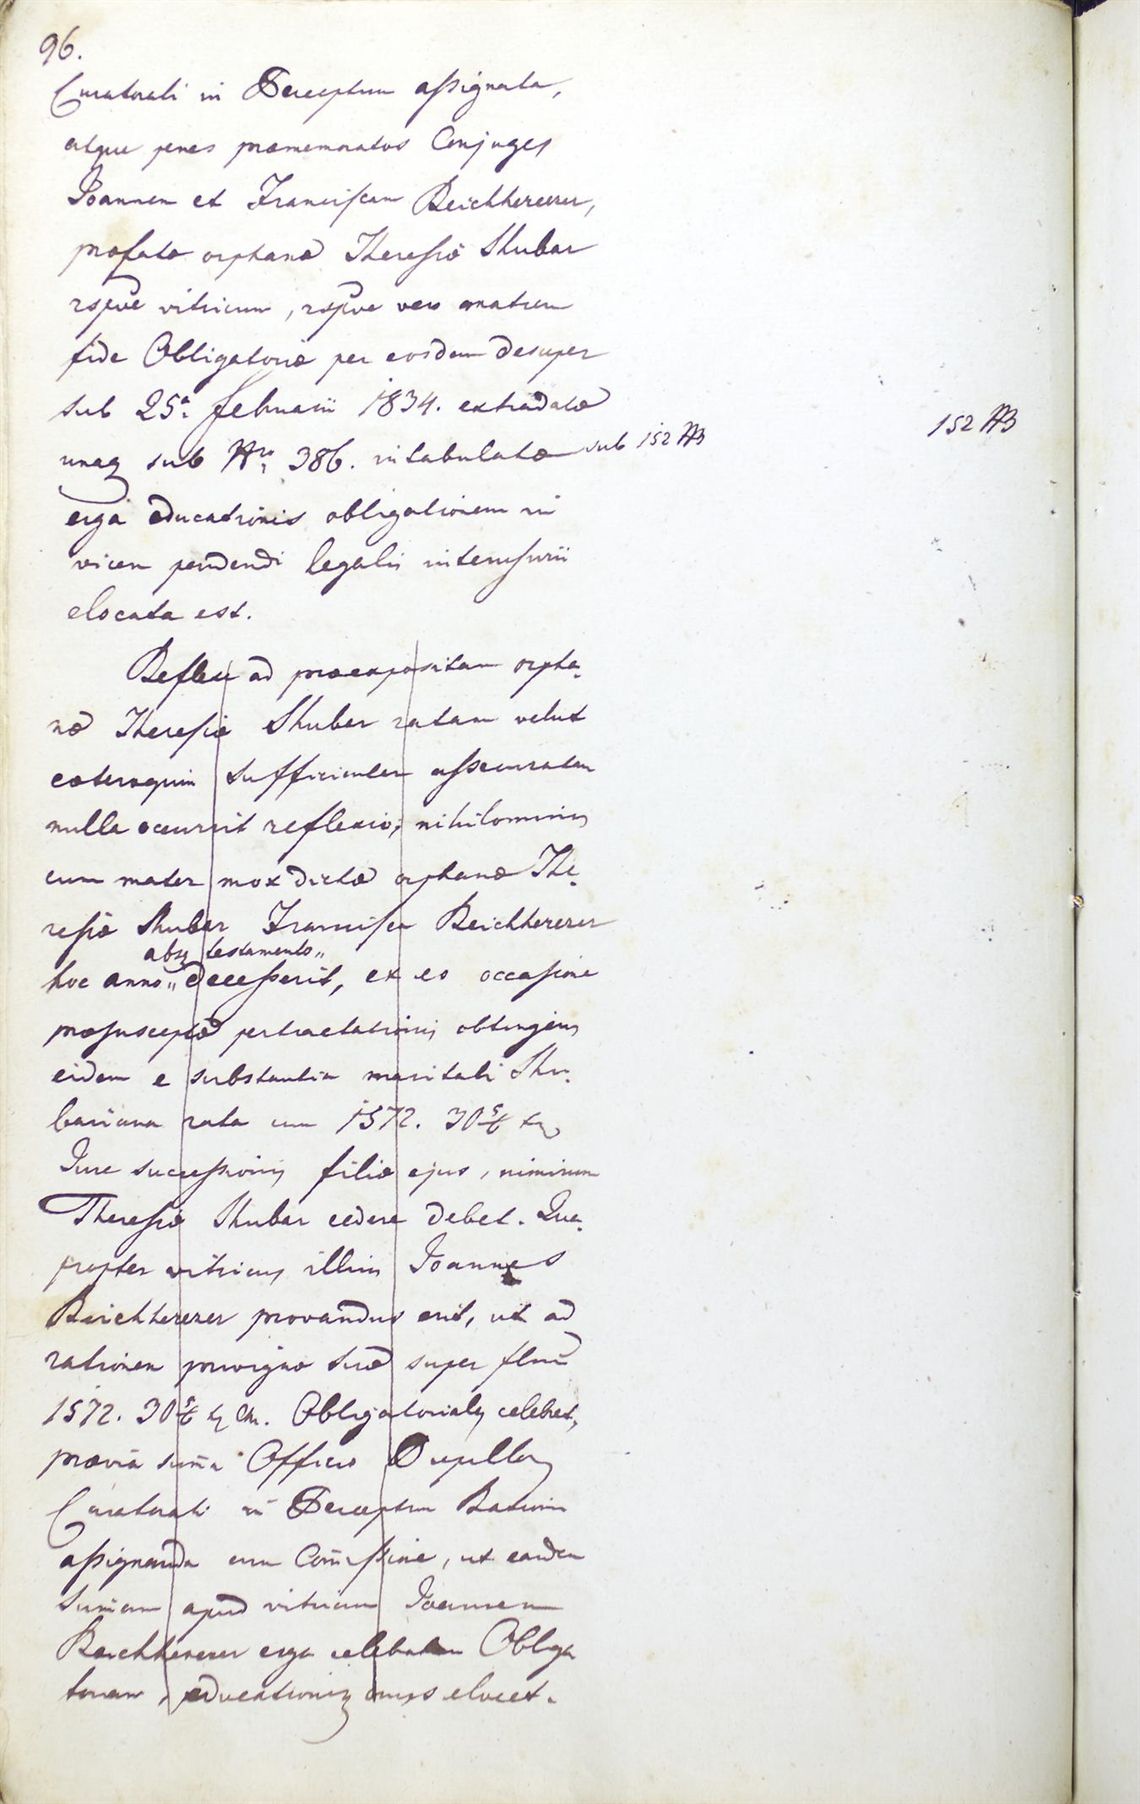 96.
Curatorali in Perceptum assignata,
atque penes praememoratos Conjuges
Joannem et Franciscam Reichherzer,
praefatae orphanae Theresiae Shubar
rsptive vitricum, rsptive vero matrem
fide Obligatoriae per eosdem desuper
sub 25a Februarii 1834. extradatae
unaq sub Nro 386. intabulatae sub 152 AB
152 AB
erga educationis obligationem in
vicem pendendi legalis interusurii
elocata est.
Reflexe ad praeexpositam orpha-
nae Theresiae Shubar ratam velut
caeteroquin sufficienter assecuratam
nulla occurrit reflexio; nihilominus
cum mater mox dictae orphanae The-
resiae Shubar Francisca Reichherzer
absq testamento "
hoc anno " decesserit, ex eo occasione
praesusceptae pertractationis obtingens
eidem e substantia maritali Shu-
bariana rata cum 1572. 30 5/6 xr
Jure successionis filiae ejus, nimirum
Theresiae Shubar cedere debet. Qua-
propter vitricus illius Joannes
Reichherzer provandus erit, ut ad
rationem privignae suae super flnis
1572. 30 5/6 Obligatorials celebret,
praevia summa Officio Pupillor
Curatorali in Perceptum Rationis
assignanda cum Commissione, ut eandem
Summam apud vitricum Joannem
Reichherzer erga celebratam Obliga
toriam, educationis onus elocet.